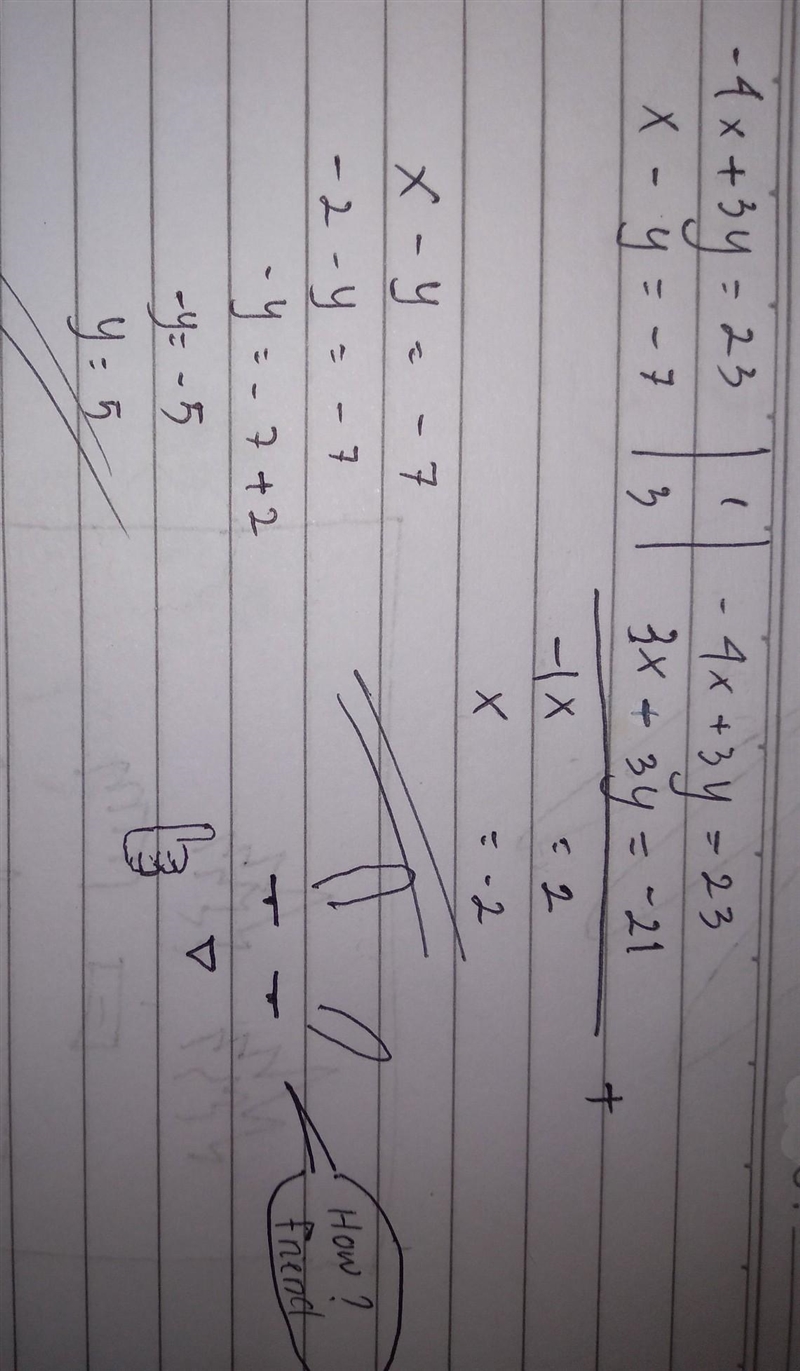 -4x + 3y = 23 | 1 | -4x + 3y = 23
x - y = -7 | 3 | 3x + 3y = -21
+
-1x = 2
x = -2
x - y = -7
-2 - y = -7
-y = -7 + 2
-y = -5
y = 5
How?
friend